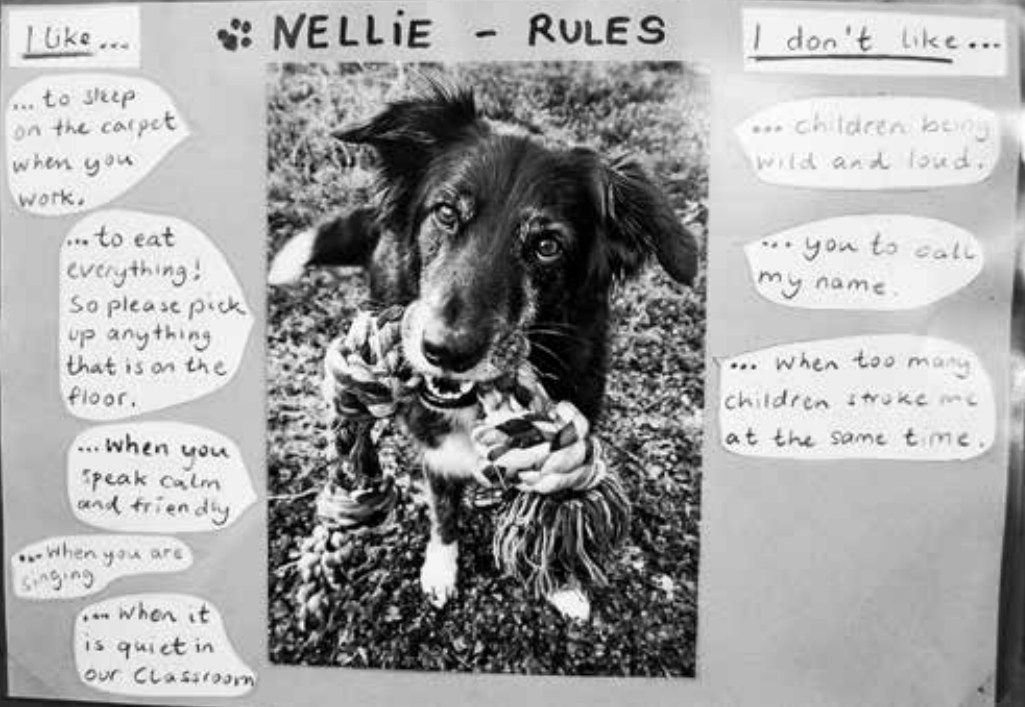 NELLiE - RULES
I like...
... to sleep
on the carpet
when you
work.
... to eat
everything!
So please pick
up anything
that is on the
floor.
... when you
speak calm
and friendly
... when you are
singing
... when it
is quiet in
our Classroom
I don't like...
... children being
wild and loud.
... you to call
my name.
... when too many
children stroke me
at the same time.